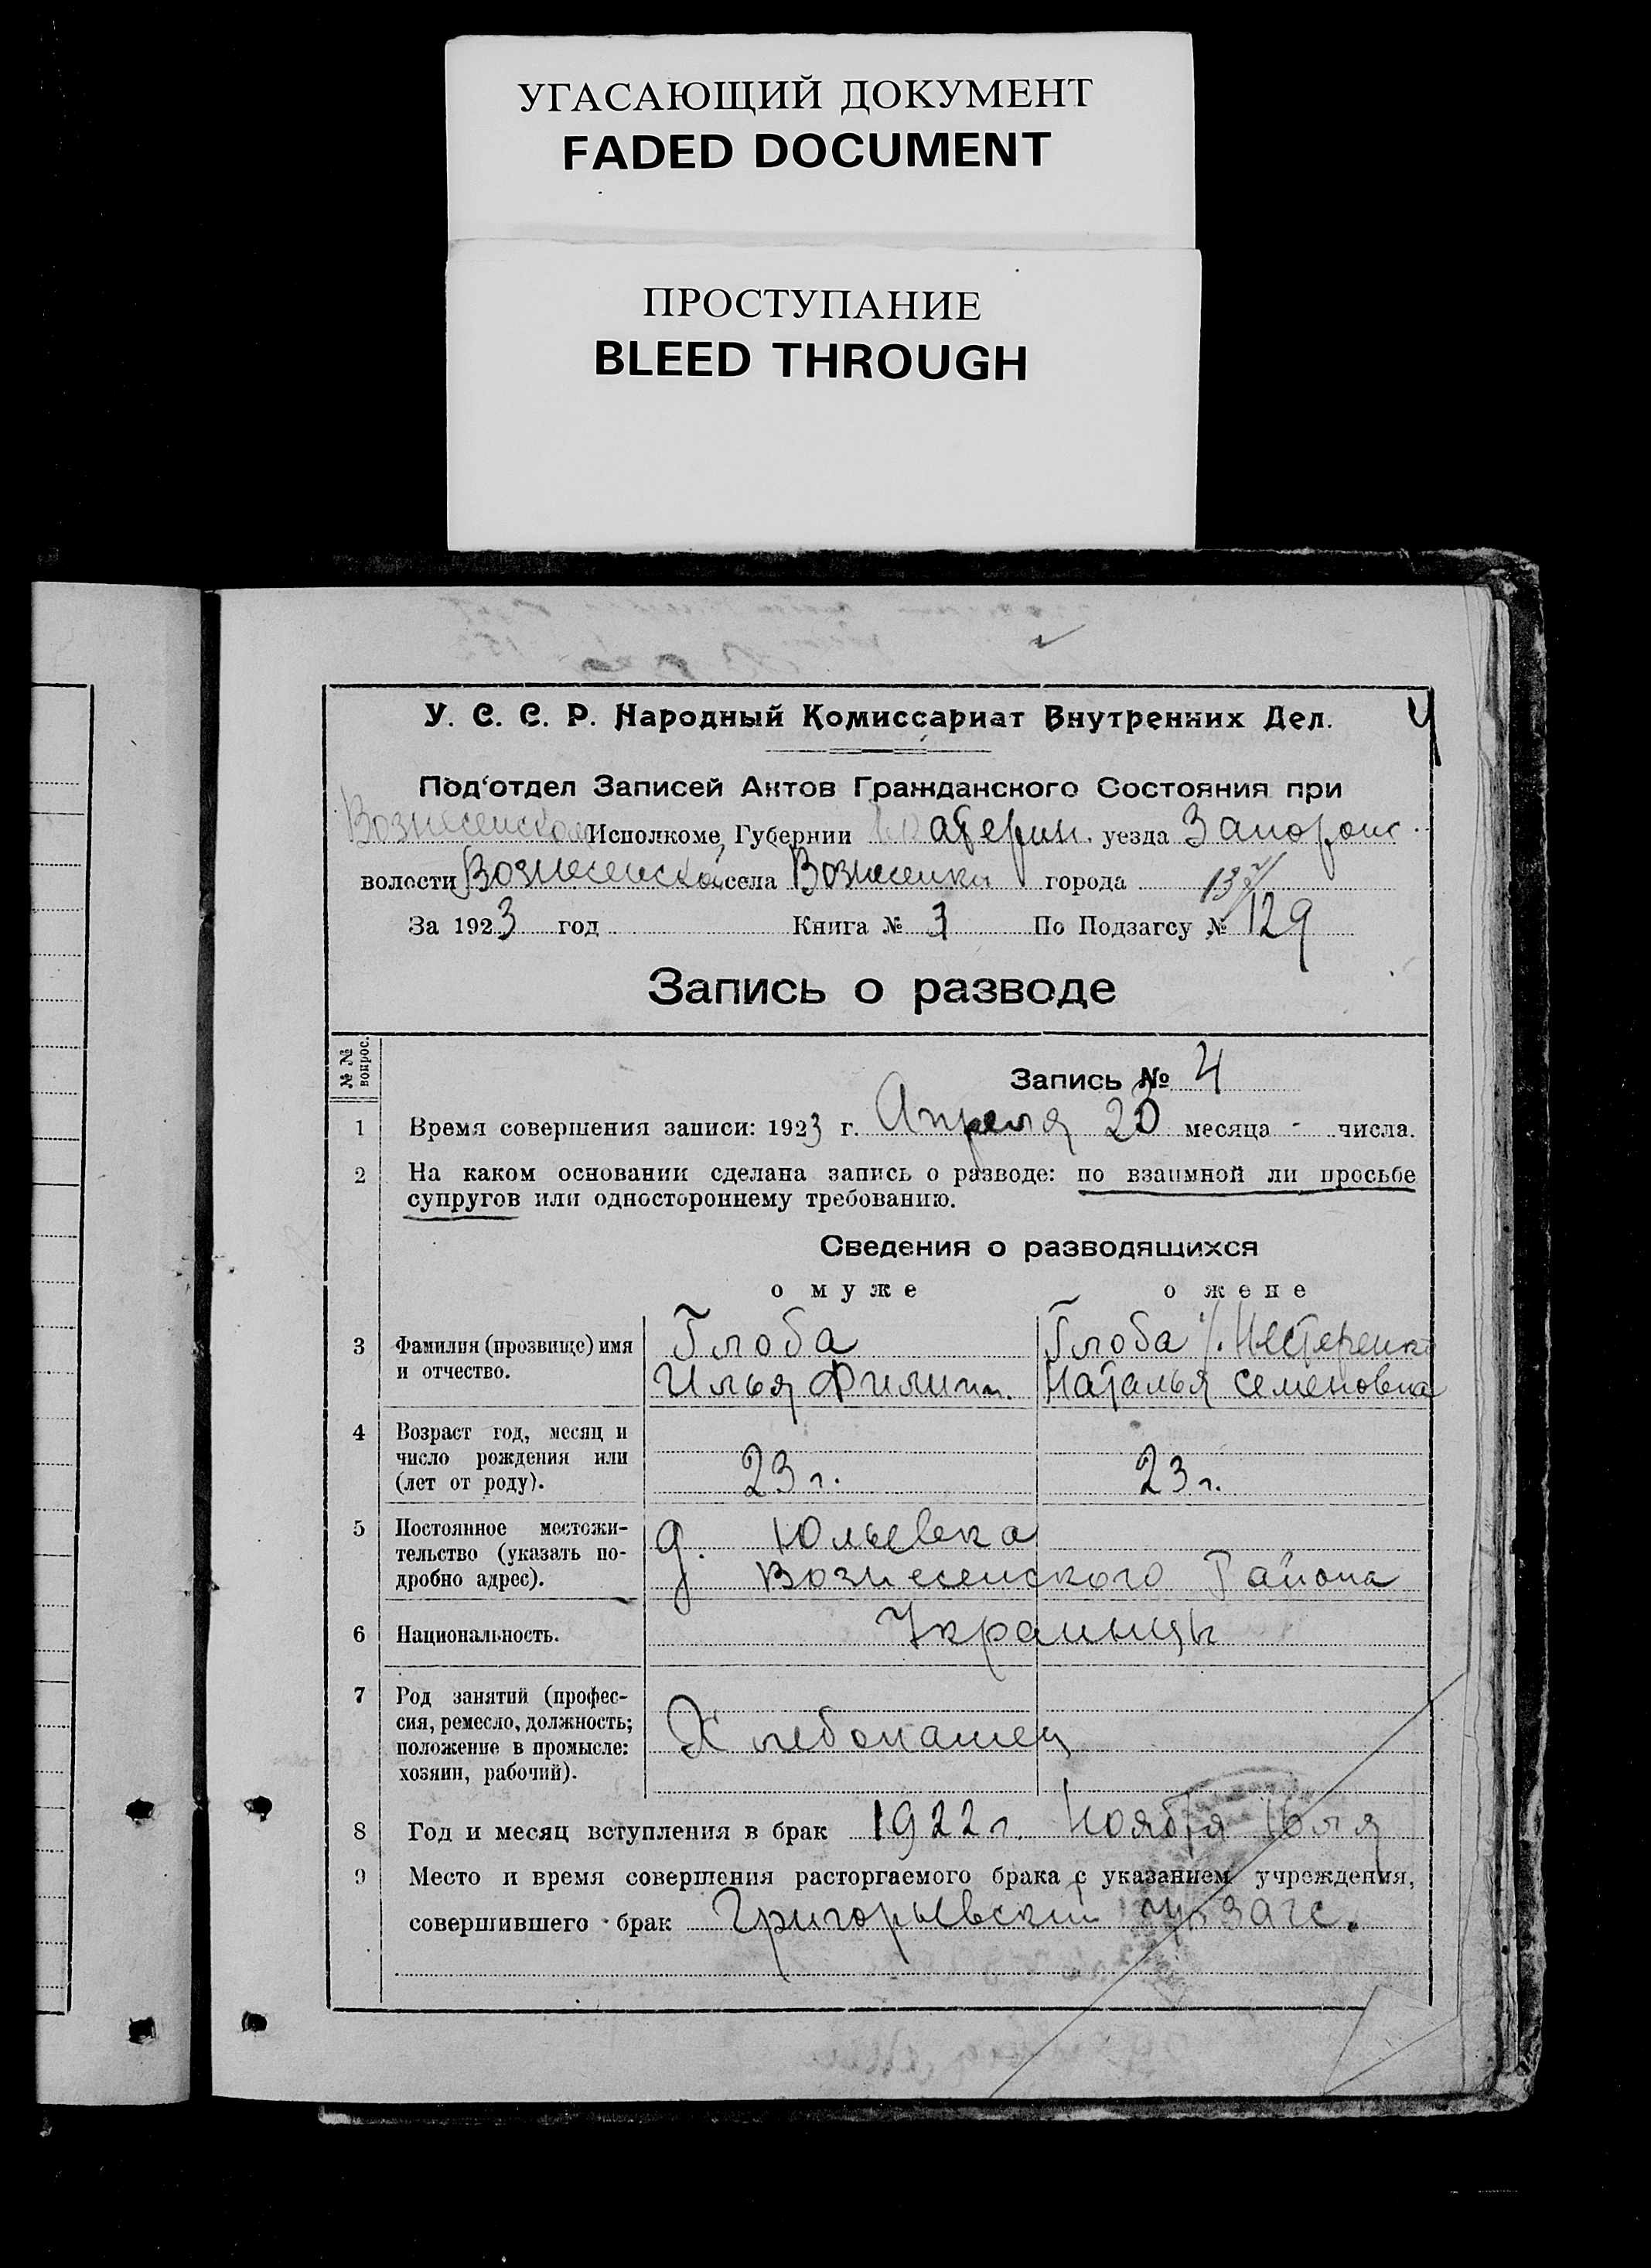 УГАСАЮЩИЙ ДОКУМЕНТ
FADED DOCUMENT
ПРОСТУПАНИЕ
BLEED THROUGH
4
У. С. С. Р. Народный Комиссариат Внутренних Дел.
Под'отдел Записей Актов Гражданского Состояния при
Вознесенском Исполкоме, Губернии Екатерин. уезда Запорож.
волости Вознесенской села Вознесенки города
За 1923 год Книга № 3 По Подзагсу № 129
Запись о разводе
№№ вопрос.
Запись № 4
1 Время совершения записи: 1923 г. Апреля 20 месяца - числа.
2 На каком основании сделана запись о разводе: по взаимной ли просьбе
супругов или одностороннему требованию.
Сведения о разводящихся
о муже о жене
3 Фамилия (прозвище) имя Глоба Глоба Нестеренко
и отчество. Илья Филипп. Наталья Семеновна
4 Возраст год, месяц и
число рождения или 23 г. 23 г.
(лет от роду).
5 Постоянное местожи- д. Юльевка
тельство (указать по- Вознесенского Района
дробно адрес).
6 Национальность. Украинцы
7 Род занятий (профес-
сия, ремесло, должность; Хлебопашец
положение в промысле:
хозяин, рабочий).
8 Год и месяц вступления в брак 1922 г. Ноября 16 дня
9 Место и время совершения расторгаемого брака с указанием учреждения,
совершившего брак Григорьевский загс.